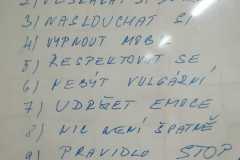 3) NASLOUCHAT SI
4) VYPNOUT MOBIL
5) RESPEKTOVAT SE
6) NEBÝT VULGÁRNÍ
7) UDRŽET EMOCE
8) NIC NENÍ ŠPATNĚ
9) PRAVIDLO STOP